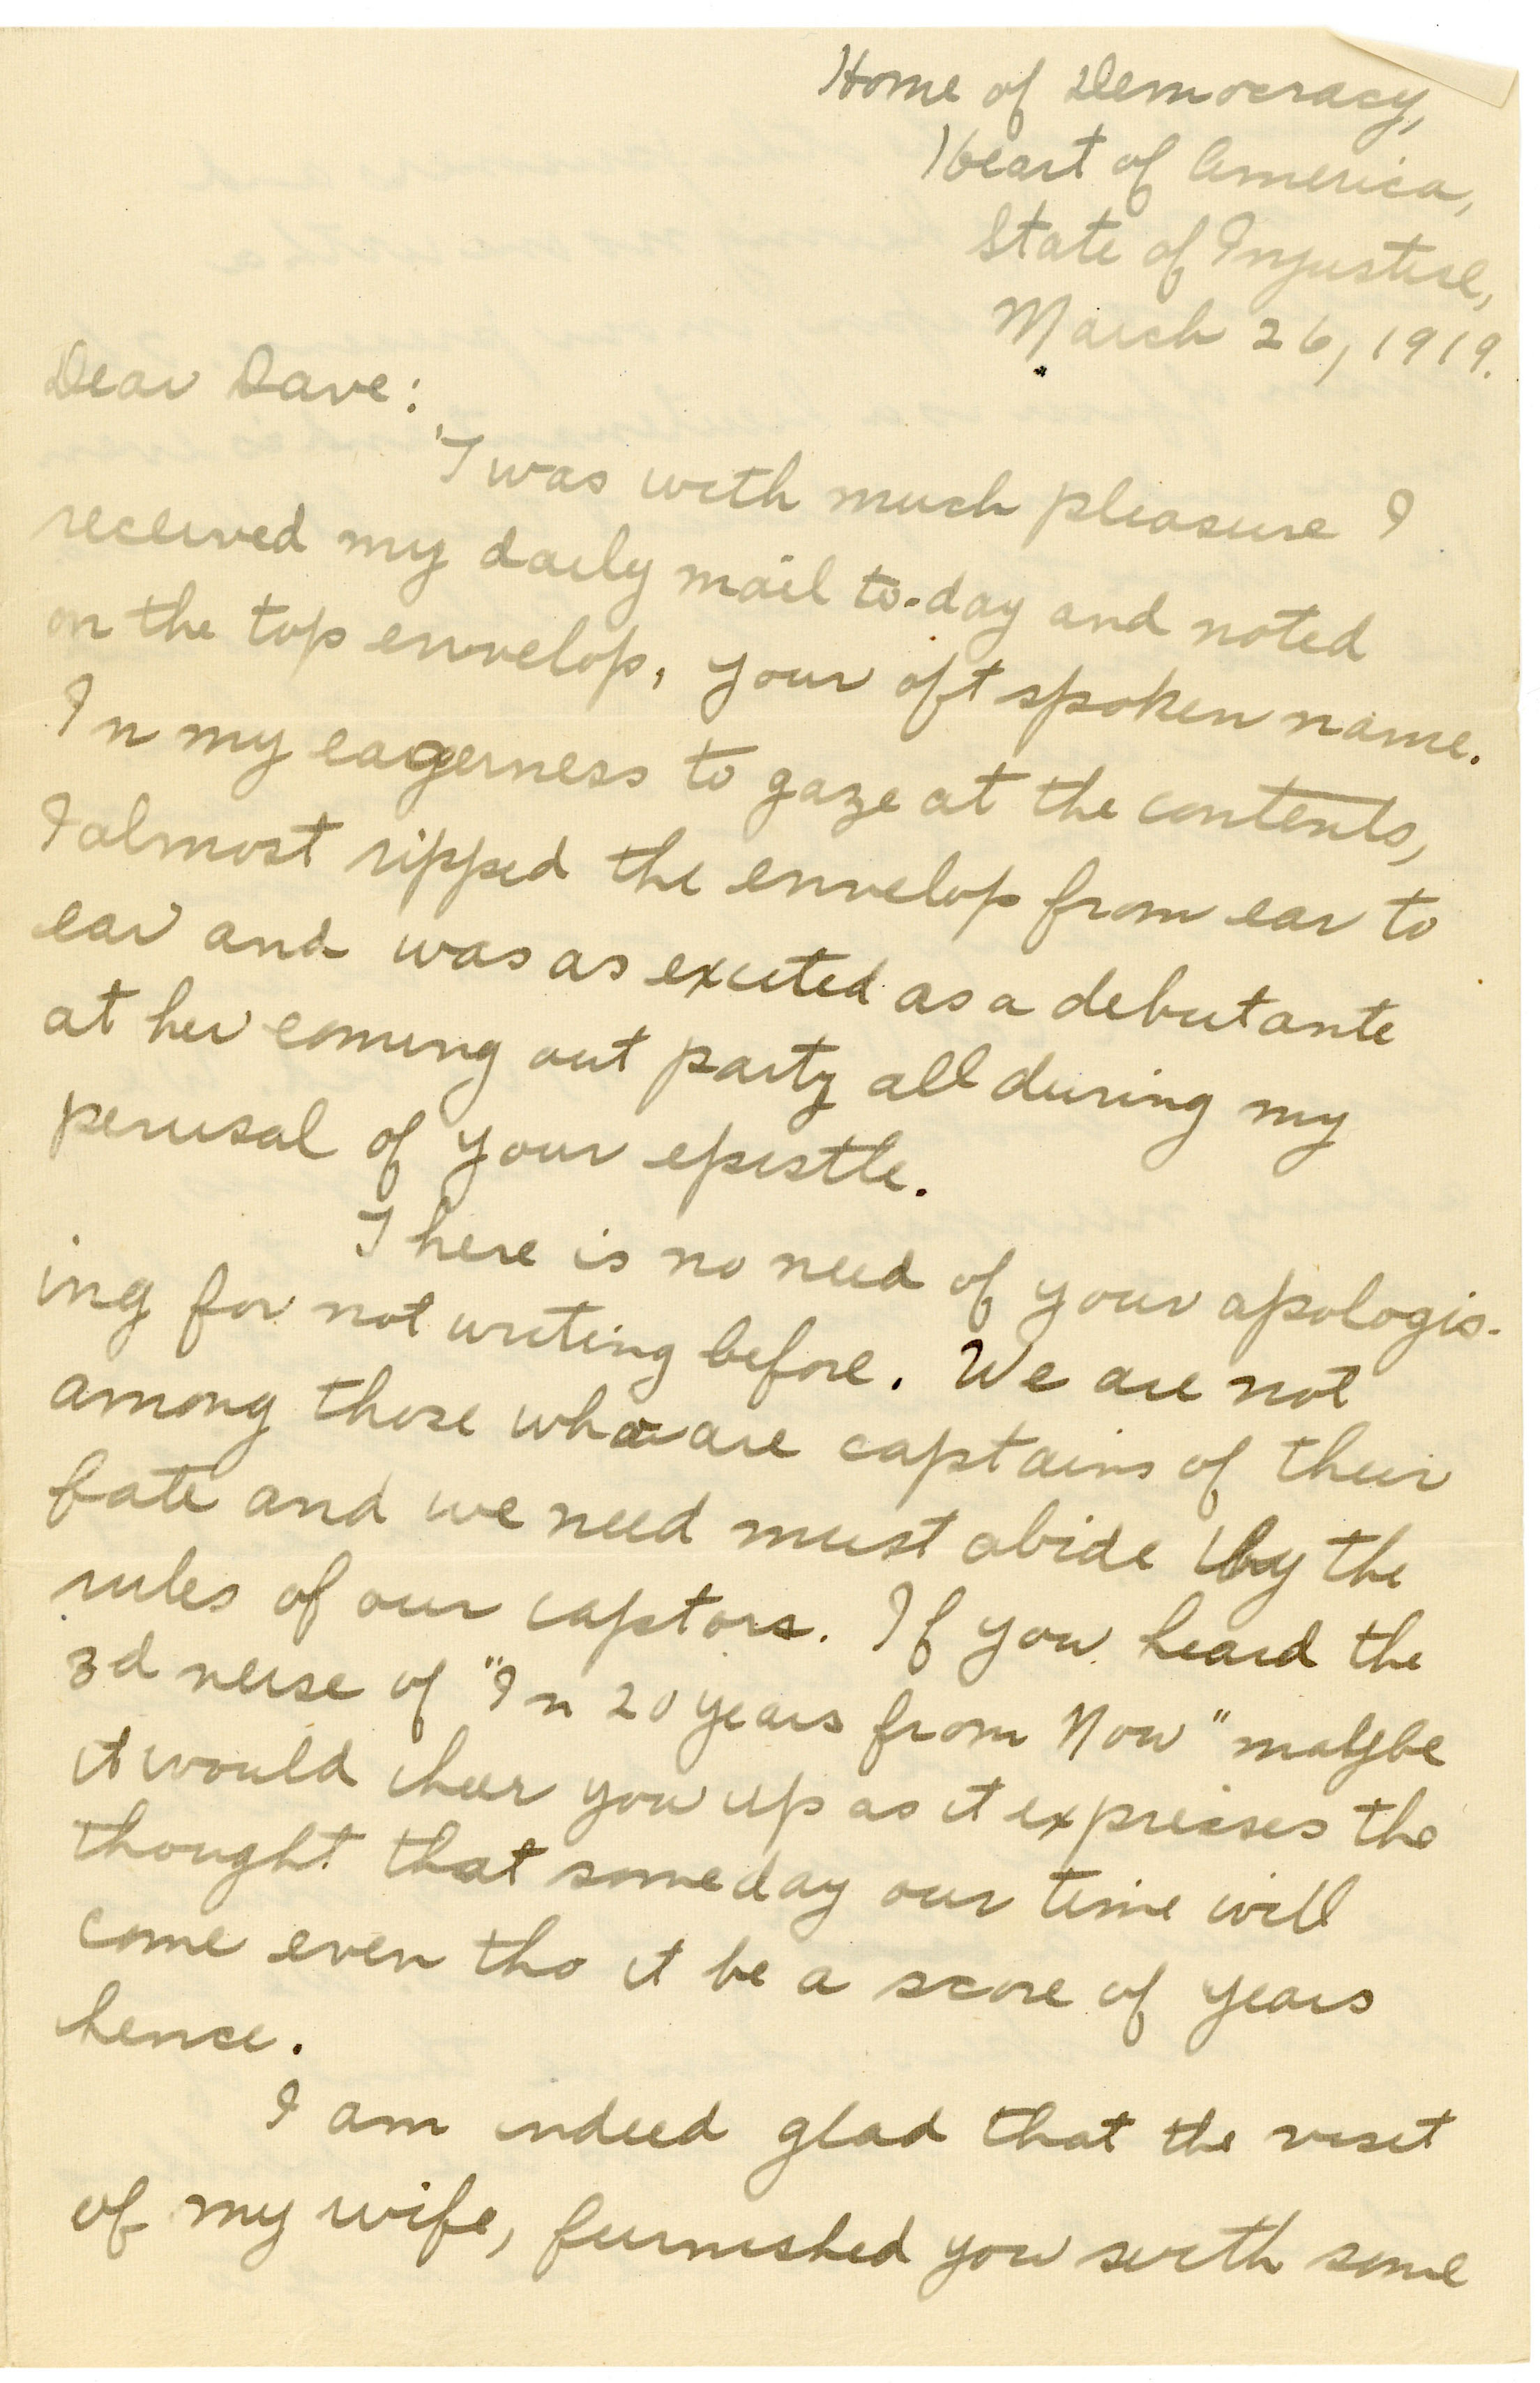 Home of Democracy,
Heart of America,
State of Injustice,
March 26, 1919.
Dear Dave:
'Twas with much pleasure I
received my daily mail to-day and noted
on the top envelop, your oft spoken name.
In my eagerness to gaze at the contents,
I almost ripped the envelop from ear to
ear and was as excited as a debutante
at her coming out party all during my
perusal of your epistle.
There is no need of your apologis-
ing for not writing before. We are not
among those who are captains of their
fate and we need must abide by the
rules of our captors. If you heard the
3d verse of "In 20 years from Now" maybe
it would cheer you up as it expresses the
thought that someday our time will
come even tho it be a score of years
hence.
I am indeed glad that the visit
of my wife, furnished you with some